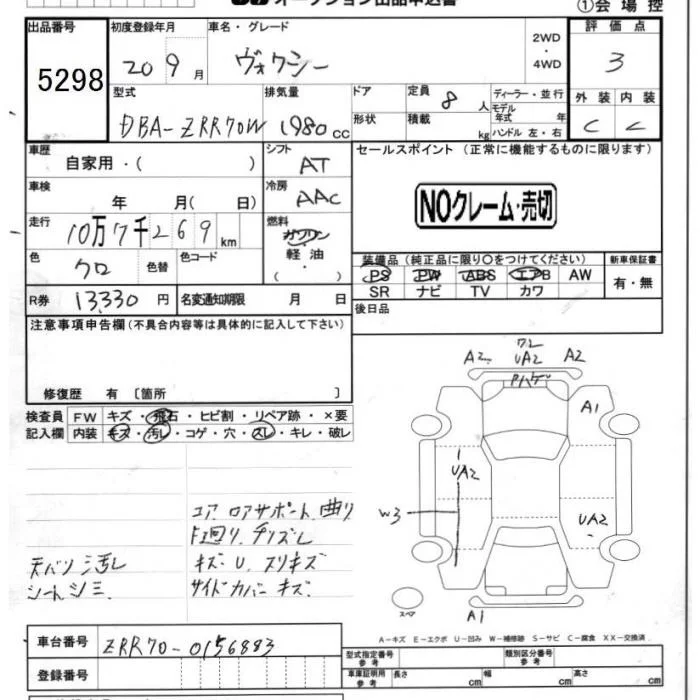 オークション出品申込書
①会場控
出品番号
5298
初度登録年月
20 9月
車名・グレード
ヴォクシー
2WD
・
4WD
評価点
3
型式
DBA-ZRR70W
排気量
1980cc
ドア
形状
定員
8人
積載
kg
ディーラー・並行
モデル
年式 年
ハンドル 左・右
外装 内装
C C
車歴
自家用・( )
シフト
AT
セールスポイント (正常に機能するものに限ります)
車検
年 月( 日)
冷房
AAC
NOクレーム・売切
走行
10万7千269km
燃料
ガソリン
軽油
・
( )
色
クロ
色替
色コード
装備品 (純正品に限り○をつけてください)
新車保証書
PS PW ABS エアB AW
SR ナビ TV カワ
有・無
R券
13,330円
名変通知期限 月 日
後日品
注意事項申告欄(不具合内容等は具体的に記入して下さい)
修復歴 有 〔箇所 〕
検査員
記入欄
FW キズ・飛石・ヒビ割・リペア跡・×要
内装 キズ・汚レ・コゲ・穴・スレ・キレ・破レ
コア、ロアサポート曲り
F廻り、チリズレ
キズ・U、スリキズ
サイドカバー キズ
天バリ 汚レ
シート シミ
A2 UA2 A2
A1
UA2
W3
UA2
A1
スペア
A-キズ E-エクボ U-凹み W-補修跡 S-サビ C-腐食 XX-交換済
車台番号
ZRR70-0156883
登録番号
型式指定番号
参考
類別区分番号
参考
車庫証明用
参考
長さ cm
幅 cm
高さ cm